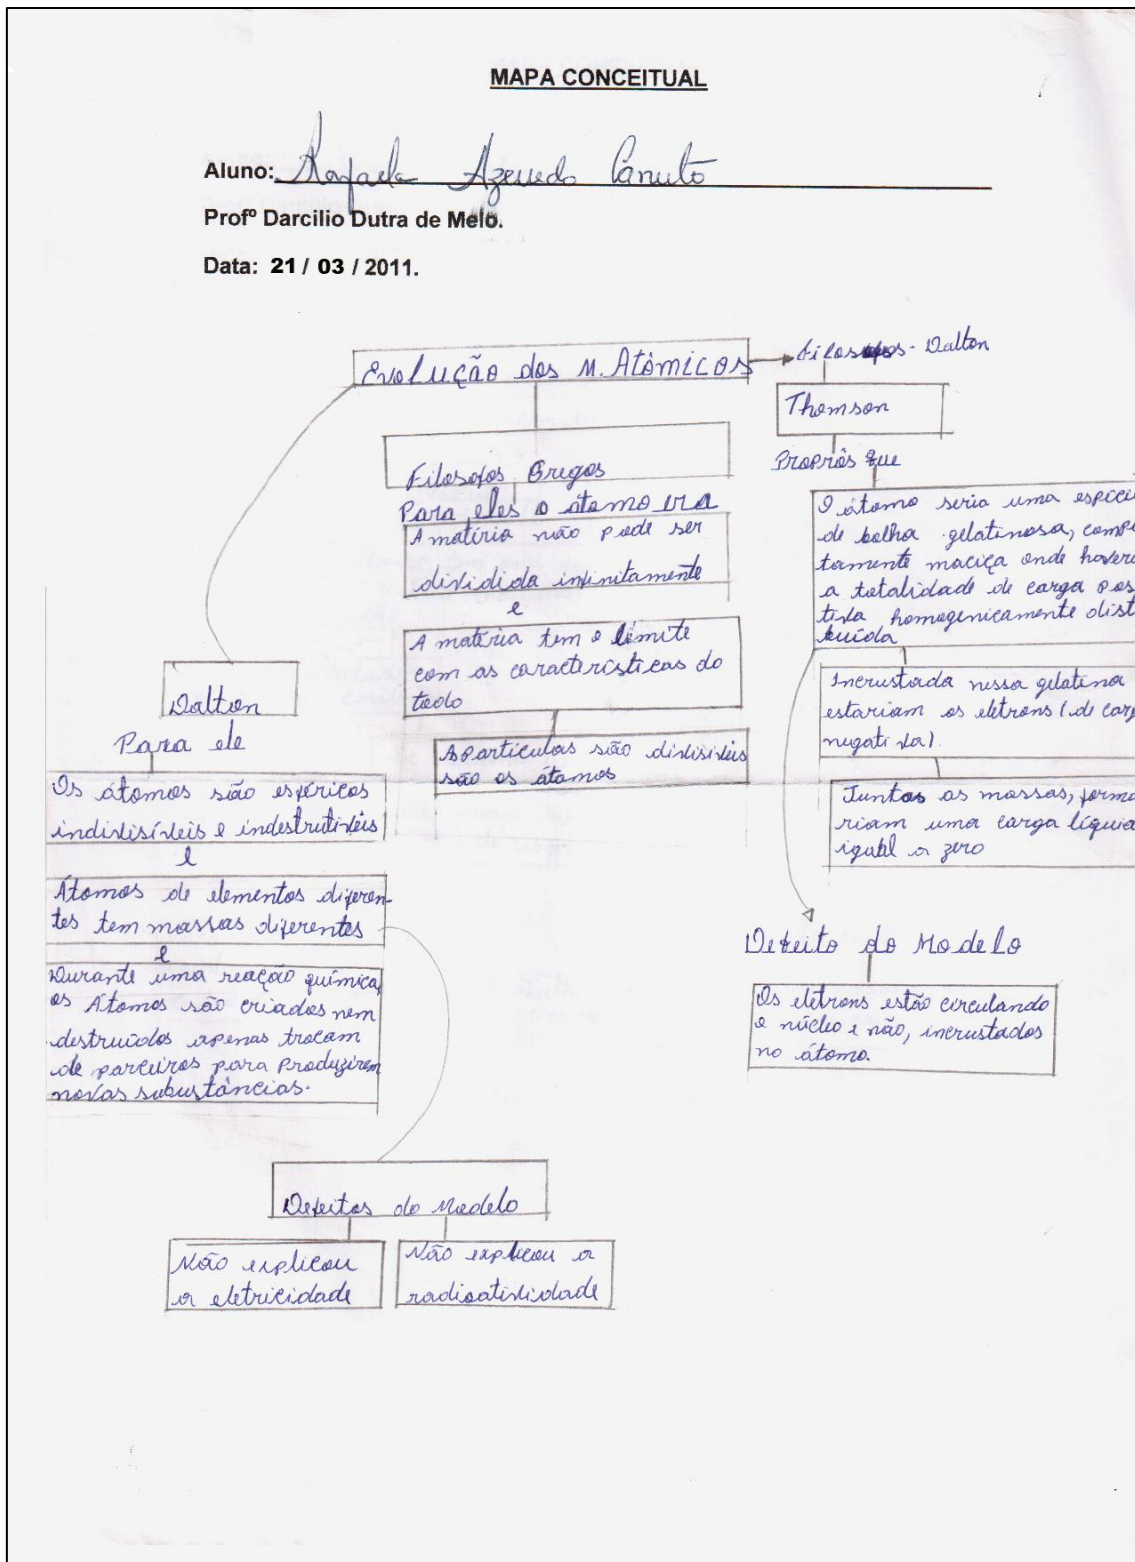 MAPA CONCEITUAL
Aluno: Rafaela Azevedo Canuto
Profº Darcilio Dutra de Melo.
Data: 21 / 03 / 2011.
Evolução dos M. Atômicos
Filosofos - Dalton
Thomson
Proprôs que
O átomo seria uma espécie
de bolha gelatinosa, comple
tamente maciça onde haver
a totalidade de carga pos
tiva homogenicamente dist
buida
Incrustada nessa gelatina
estariam os elétrons (de carg
negativa).
Juntas as massas, forma
riam uma carga líquid
igual a zero
Defeito do Modelo
Os elétrons estão circulando
o núcleo e não, incrustados
no átomo.
Filosofos Gregos
Para eles o átomo era
A matéria não pode ser
dividida infinitamente
e
A matéria tem o limite
com as características do
todo
As Particulas são divisivéis
são os átomos
Dalton
Para ele
Os átomos são esféricos
indivisíveis e indestrutíveis
e
Átomos de elementos diferen-
tes tem massas diferentes
e
Durante uma reação química,
os Átomos são criados nem
destruídos apenas trocam
de parceiros para Produzirem
novas subustâncias.
Defeitos do Modelo
Não explicou
a eletricidade
Não explicou a
radioatividade